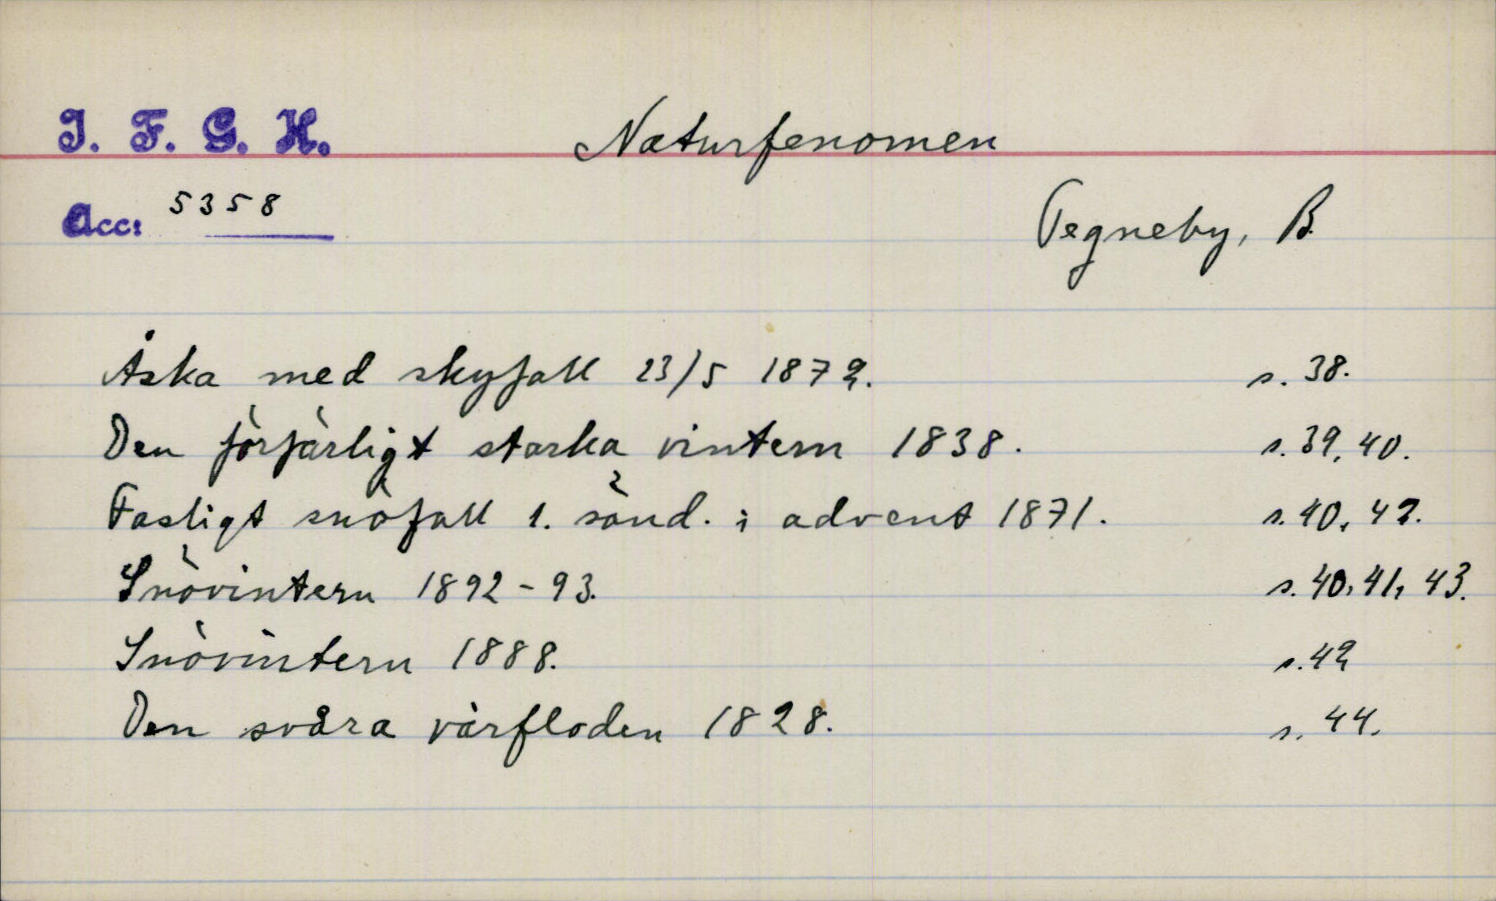 I. F. G. H.
Naturfenomen
Acc: 5358
Tegneby, B.
Åska med skyfall 23/5 1872. s. 38.
Den förfärligt starka vintern 1838. s. 39, 40.
Fasligt snöfall 1. sönd. i advent 1871. s. 40, 42.
Snövintern 1892-93. s. 40, 41, 43.
Snövintern 1888. s. 42
Den svåra vårfloden 1828. s. 44.